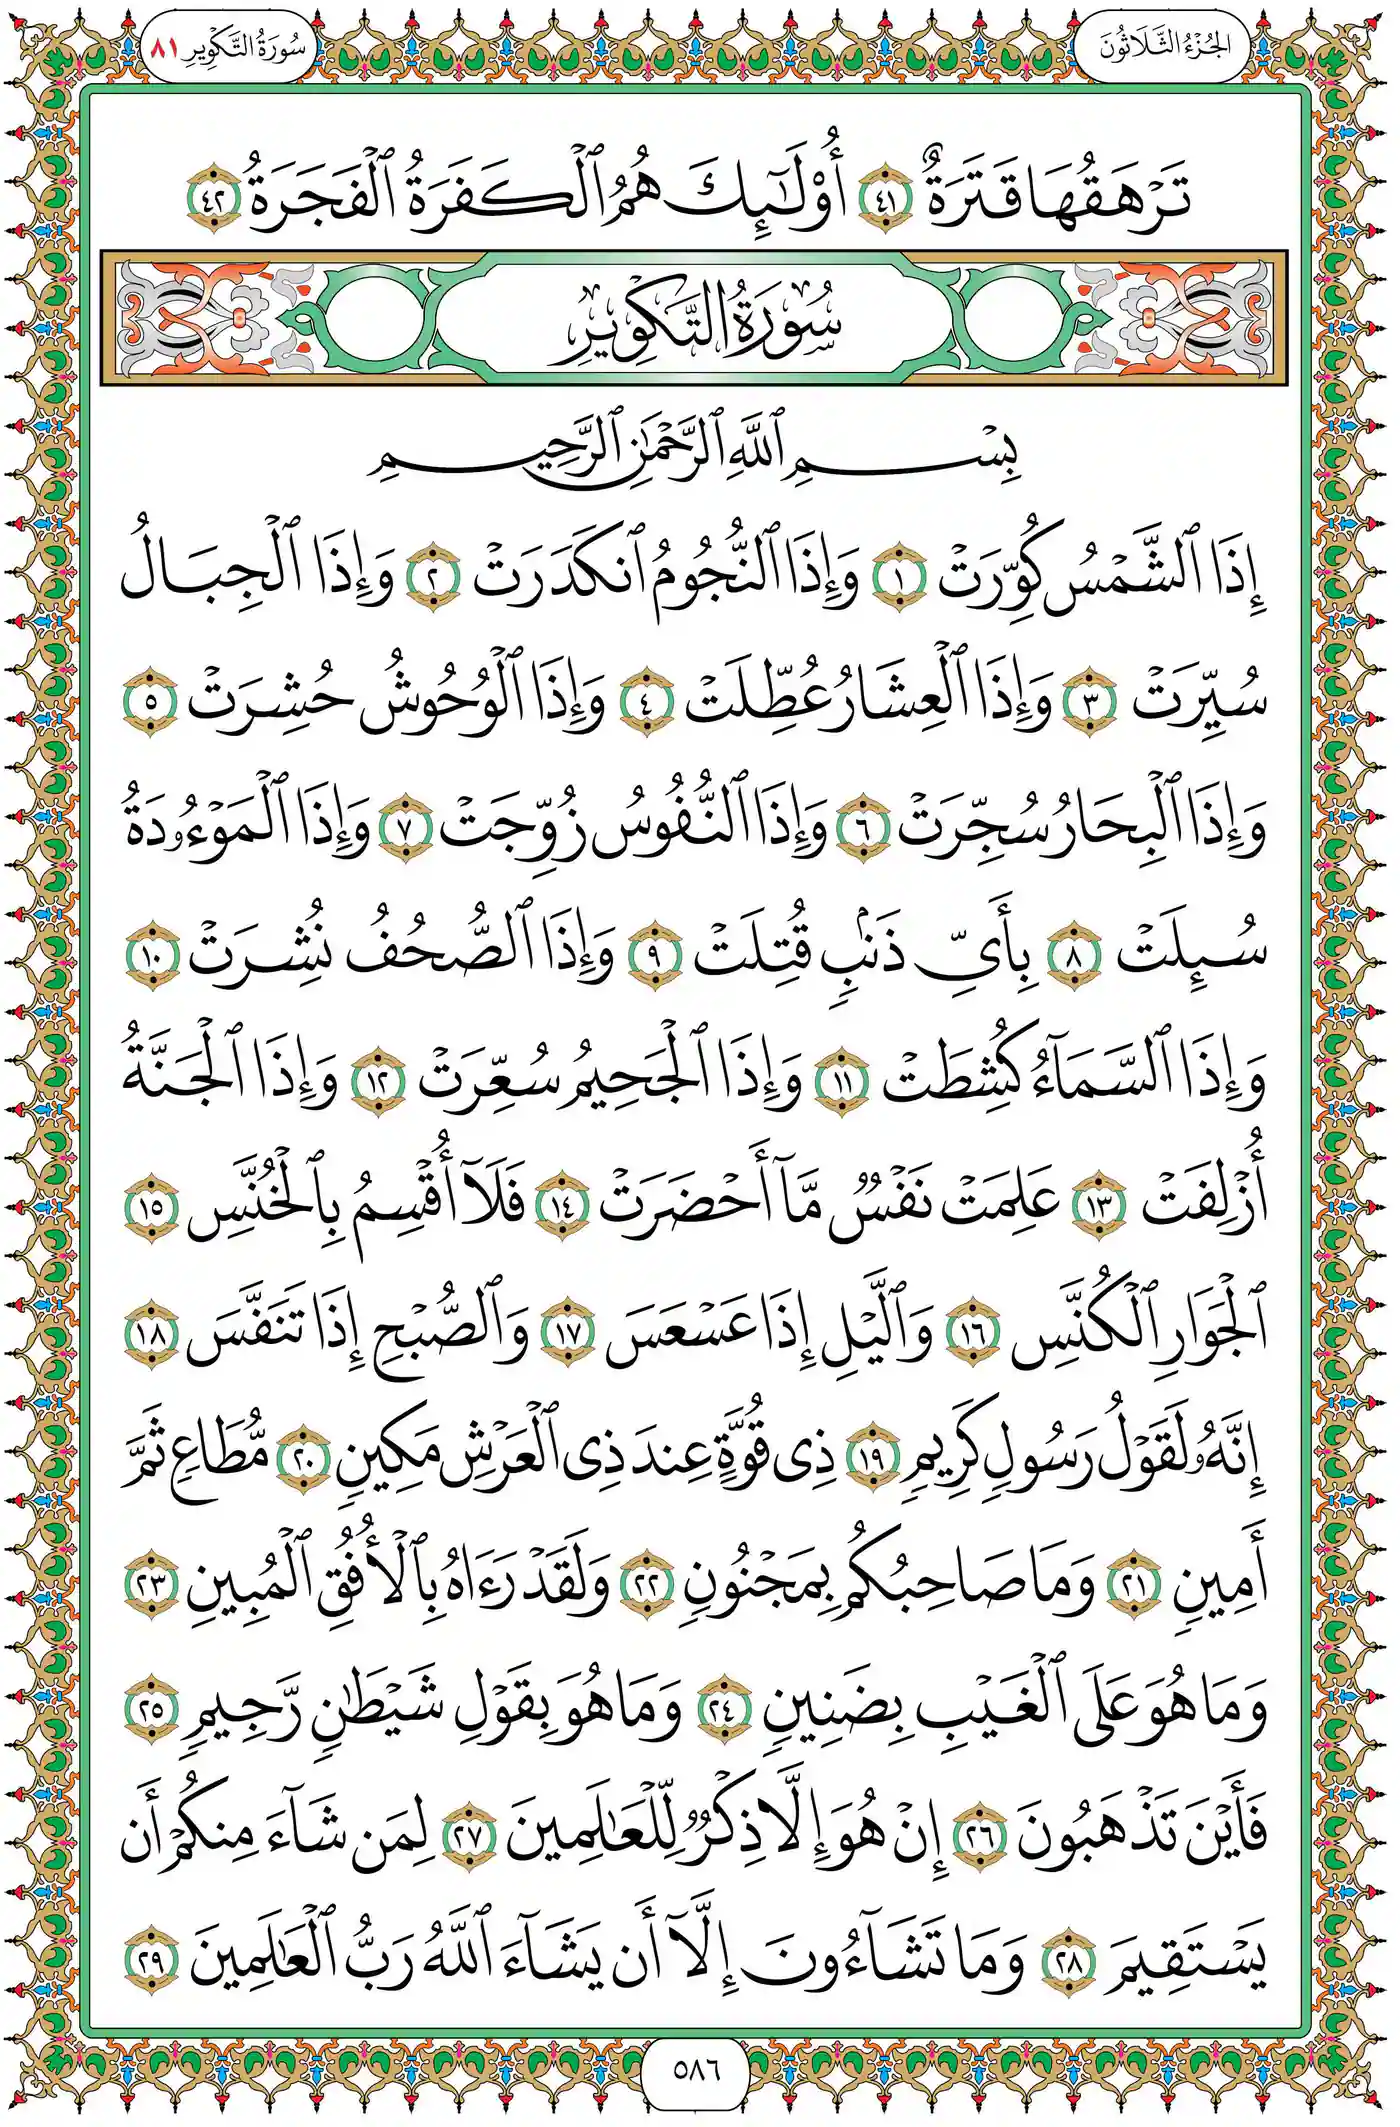 الجُزْءُ الثَّلَاثُونَ
سُورَةُ التَّكْوِيرِ ٨١
تَرْهَقُهَا قَتَرَةٌ ٤١ أُو۟لَـٰٓئِكَ هُمُ ٱلْكَفَرَةُ ٱلْفَجَرَةُ ٤٢
سُورَةُ التَّكْوِيرِ
بِسْمِ ٱللَّهِ ٱلرَّحْمَـٰنِ ٱلرَّحِيمِ
إِذَا ٱلشَّمْسُ كُوِّرَتْ ١ وَإِذَا ٱلنُّجُومُ ٱنكَدَرَتْ ٢ وَإِذَا ٱلْجِبَالُ
سُيِّرَتْ ٣ وَإِذَا ٱلْعِشَارُ عُطِّلَتْ ٤ وَإِذَا ٱلْوُحُوشُ حُشِرَتْ ٥
وَإِذَا ٱلْبِحَارُ سُجِّرَتْ ٦ وَإِذَا ٱلنُّفُوسُ زُوِّجَتْ ٧ وَإِذَا ٱلْمَوْءُۥدَةُ
سُئِلَتْ ٨ بِأَىِّ ذَنۢبٍ قُتِلَتْ ٩ وَإِذَا ٱلصُّحُفُ نُشِرَتْ ١٠
وَإِذَا ٱلسَّمَآءُ كُشِطَتْ ١١ وَإِذَا ٱلْجَحِيمُ سُعِّرَتْ ١٢ وَإِذَا ٱلْجَنَّةُ
أُزْلِفَتْ ١٣ عَلِمَتْ نَفْسٌ مَّآ أَحْضَرَتْ ١٤ فَلَآ أُقْسِمُ بِٱلْخُنَّسِ ١٥
ٱلْجَوَارِ ٱلْكُنَّسِ ١٦ وَٱلَّيْلِ إِذَا عَسْعَسَ ١٧ وَٱلصُّبْحِ إِذَا تَنَفَّسَ ١٨
إِنَّهُۥ لَقَوْلُ رَسُولٍ كَرِيمٍ ١٩ ذِى قُوَّةٍ عِندَ ذِى ٱلْعَرْشِ مَكِينٍ ٢٠ مُّطَاعٍ ثَمَّ
أَمِينٍ ٢١ وَمَا صَاحِبُكُم بِمَجْنُونٍ ٢٢ وَلَقَدْ رَءَاهُ بِٱلْأُفُقِ ٱلْمُبِينِ ٢٣
وَمَا هُوَ عَلَى ٱلْغَيْبِ بِضَنِينٍ ٢٤ وَمَا هُوَ بِقَوْلِ شَيْطَـٰنٍ رَّجِيمٍ ٢٥
فَأَيْنَ تَذْهَبُونَ ٢٦ إِنْ هُوَ إِلَّا ذِكْرٌ لِّلْعَـٰلَمِينَ ٢٧ لِمَن شَآءَ مِنكُمْ أَن
يَسْتَقِيمَ ٢٨ وَمَا تَشَآءُونَ إِلَّآ أَن يَشَآءَ ٱللَّهُ رَبُّ ٱلْعَـٰلَمِينَ ٢٩
٥٨٦